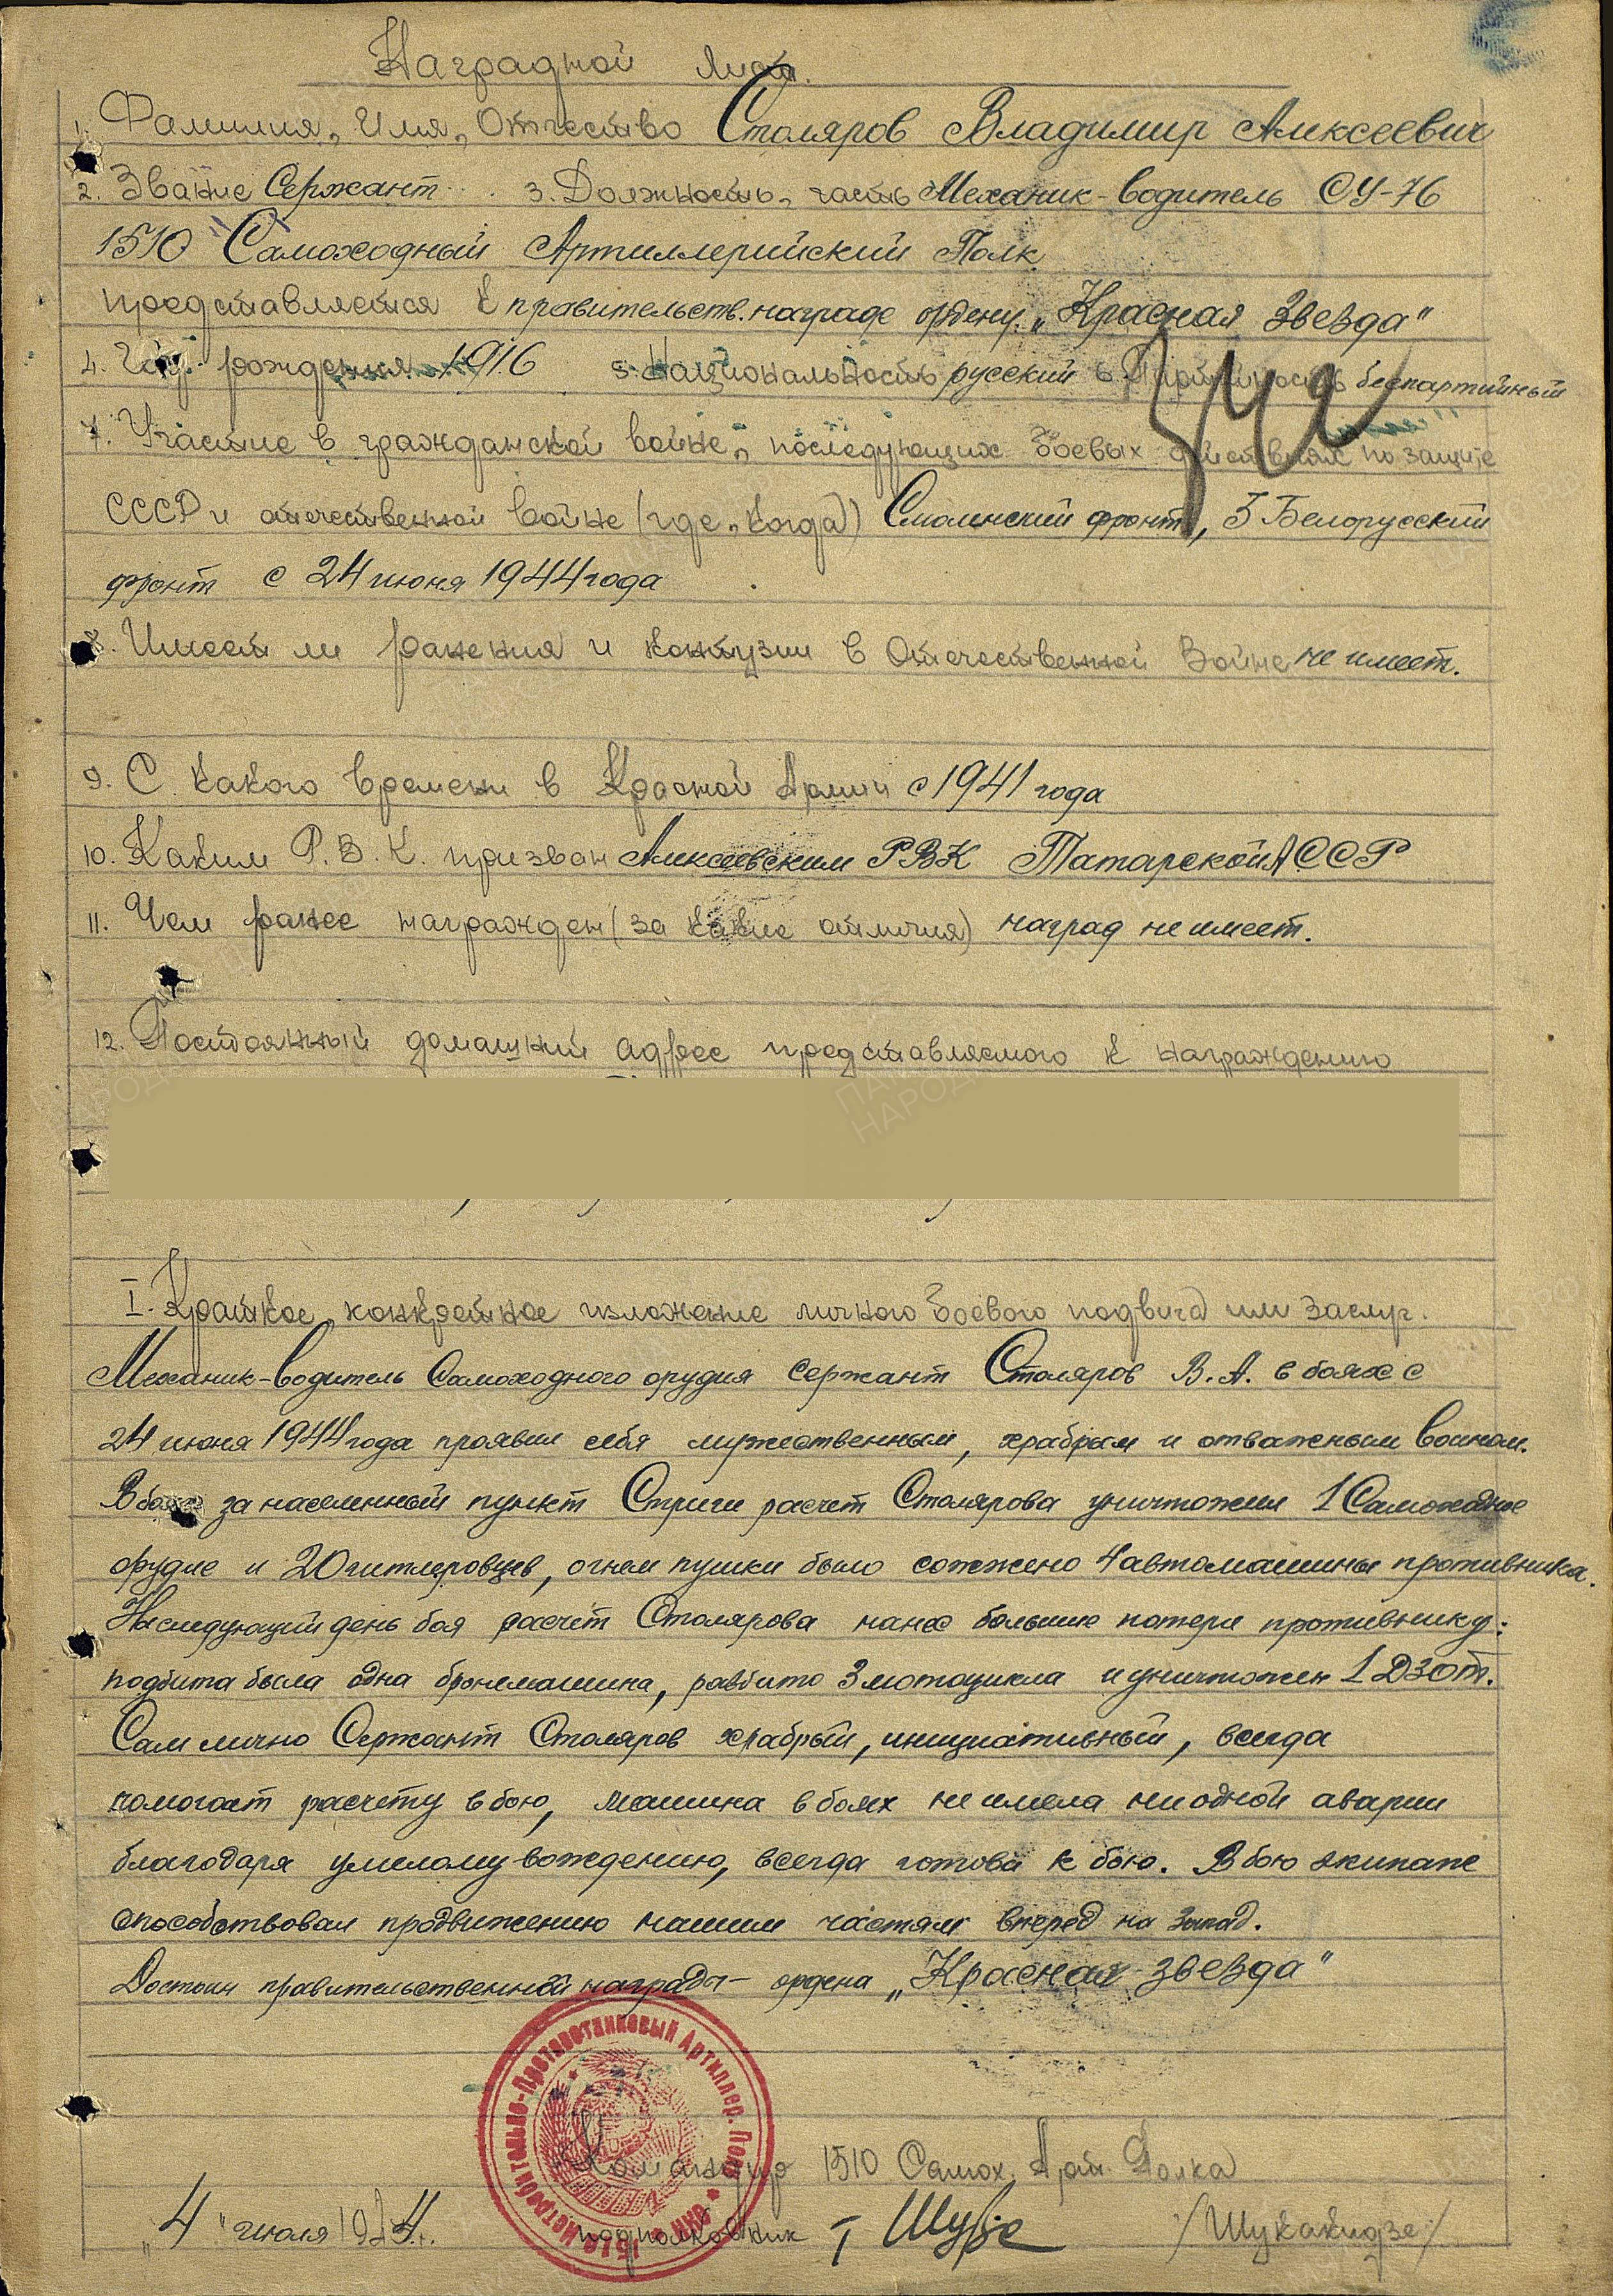 Наградной лист.
1. Фамилия, Имя, Отчество Столяров Владимир Алексеевич
2. Звание Сержант 3. Должность, часть Механик-водитель СУ-76
1510 Самоходный Артиллерийский Полк
представляется к правительств. награде ордену „Красная Звезда"
4. Год рождения 1916 5. Национальность русский 6. Партийность беспартийный
7. Участие в гражданской войне, последующих боевых действиях по защите
СССР и отечественной войне (где, когда) Смоленский фронт, 3 Белорусский
фронт с 24 июня 1944 года
8. Имеет ли ранения и контузии в Отечественной Войне не имеет.
9. С какого времени в Красной Армии с 1941 года
10. Каким Р.В.К. призван Алексеевским РВК Татарской АССР
11. Чем ранее награжден (за какие отличия) наград не имеет.
12. Постоянный домашний адрес представляемого к награждению
I. Краткое, конкретное изложение личного боевого подвига или заслуг.
Механик-водитель Самоходного орудия Сержант Столяров В.А. в боях с
24 июня 1944 года проявил себя мужественным, храбрым и отважным воином.
В боях за населенный пункт Стриги расчет Столярова уничтожил 1 Самоходное
орудие и 20 гитлеровцев, огнем пушки было сожжено 4 автомашины противника.
На следующий день боя расчет Столярова нанес большие потери противнику:
подбита была одна бронемашина, разбито 3 мотоцикла и уничтожен 1 ДЗОТ.
Сам лично Сержант Столяров храбрый, инициативный, всегда
помогает расчету в бою, машина в боях не имела ни одной аварии
благодаря умелому вождению, всегда готова к бою. В бою экипаж
способствовал продвижению нашим частям вперед на запад.
Достоин правительственной награды – ордена „Красная звезда"
Истребительно-Противотанковый Артиллер. Полк
Командир 1510 Самох. Арт. Полка
„4" июля 1944 г. подполковник /Шукакидзе/